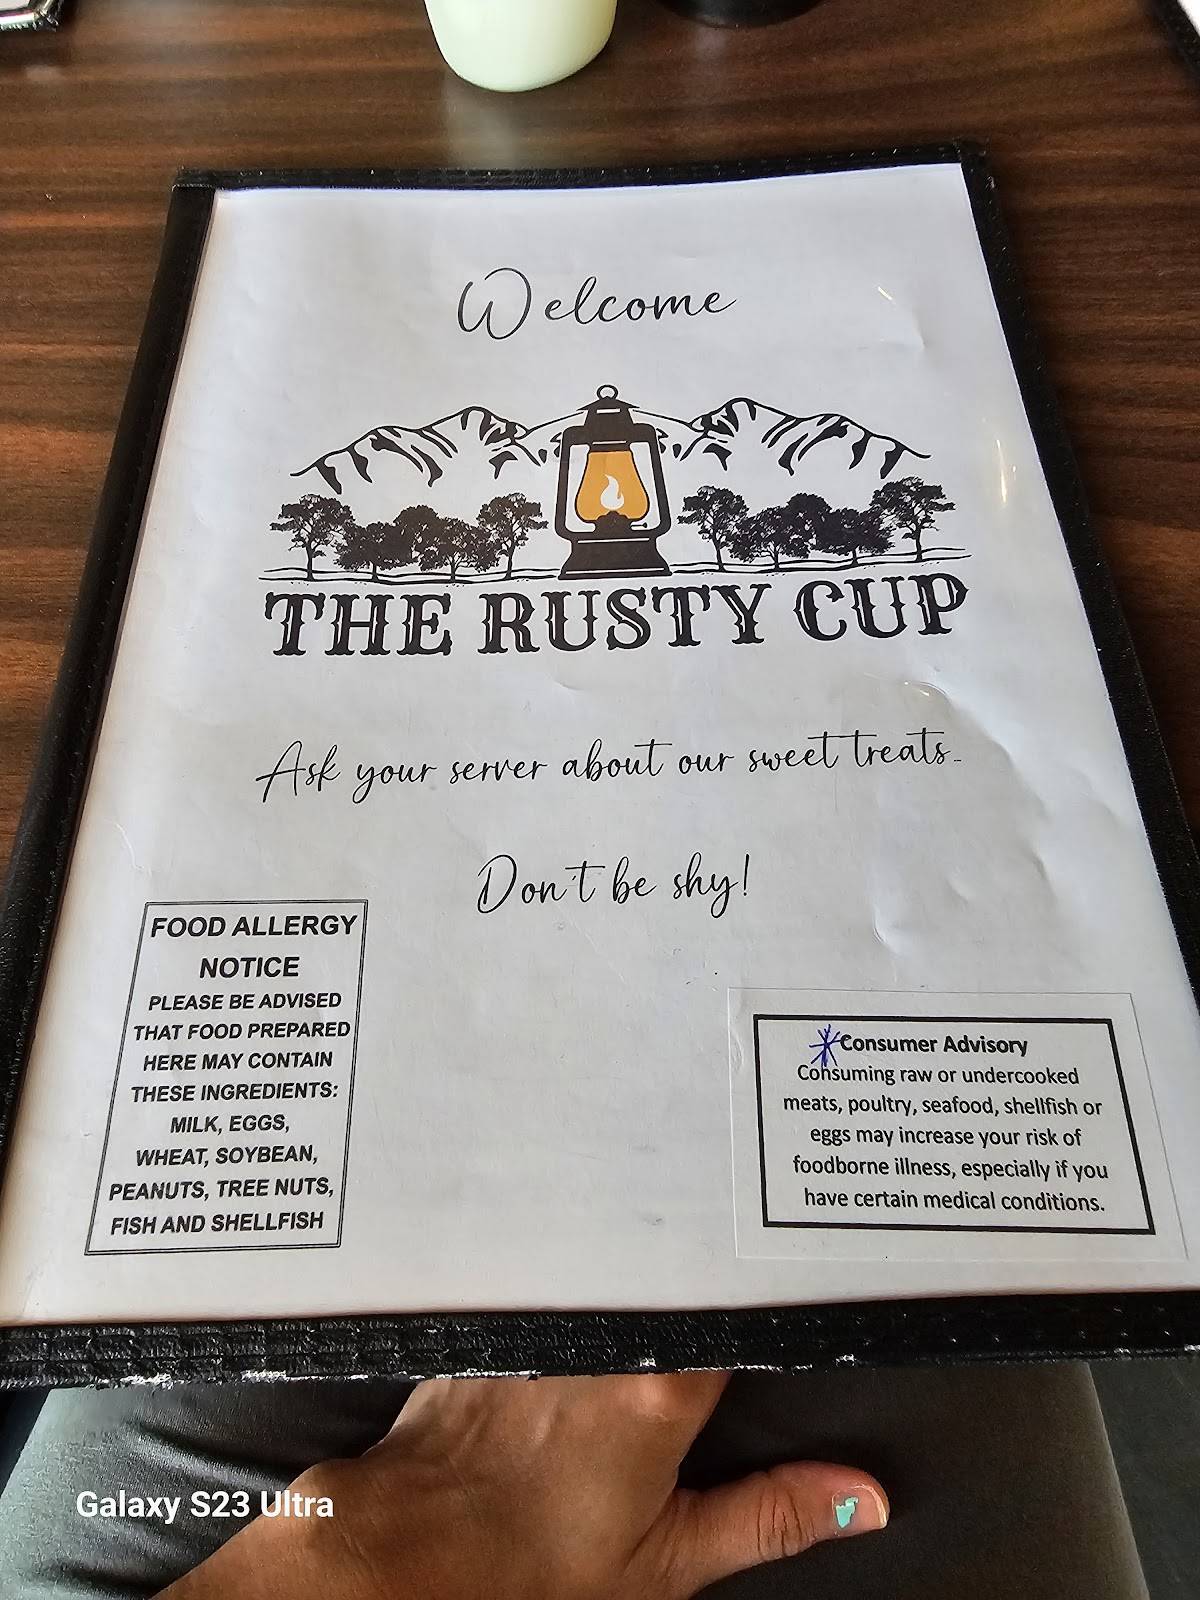 Welcome
THE RUSTY CUP
Ask your server about our sweet treats..
Don't be shy!
FOOD ALLERGY
NOTICE
PLEASE BE ADVISED
THAT FOOD PREPARED
HERE MAY CONTAIN
THESE INGREDIENTS:
MILK, EGGS,
WHEAT, SOYBEAN,
PEANUTS, TREE NUTS,
FISH AND SHELLFISH
*Consumer Advisory
Consuming raw or undercooked
meats, poultry, seafood, shellfish or
eggs may increase your risk of
foodborne illness, especially if you
have certain medical conditions.
Galaxy S23 Ultra